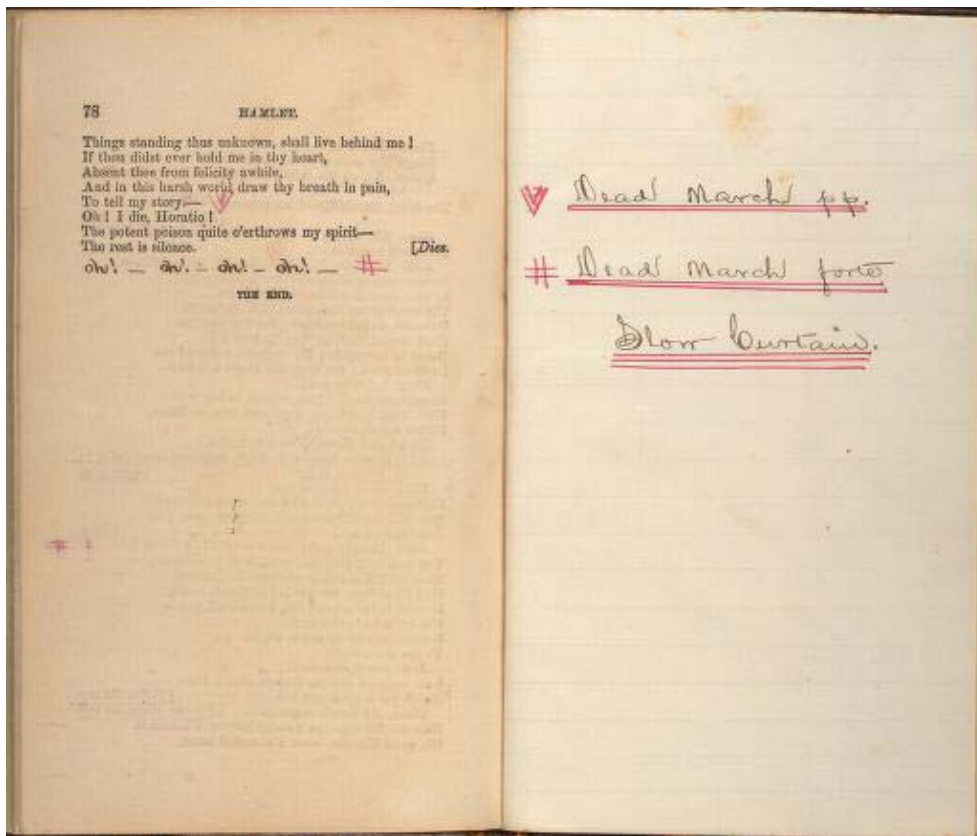 78 HAMLET.
Things standing thus unknown, shall live behind me!
If thou didst ever hold me in thy heart,
Absent thee from felicity awhile,
And in this harsh world draw thy breath in pain,
To tell my story.—
Oh! I die, Horatio!
The potent poison quite o'erthrows my spirit—
The rest is silence. [Dies.
oh! — oh! - oh! - oh! — #
THE END.
Dead March pp.
# Dead March forte
Slow Curtain.